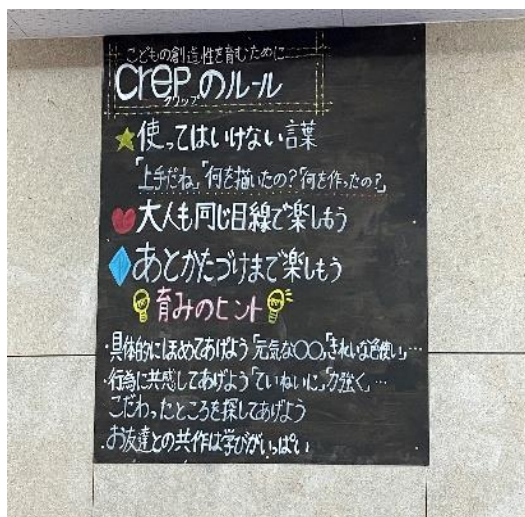 こどもの創造性を育むために
crepのルール
クリップ
使ってはいけない言葉
「上手だね」「何を描いたの?」「何を作ったの?」
大人も同じ目線で楽しもう
あとかたづけまで楽しもう
育みのヒント
・具体的にほめてあげよう「元気な○○」「きれいな色使い」…
・行為に共感してあげよう「ていねいに」「力強く」…
こだわったところを探してあげよう
お友達との共作は学びがいっぱい